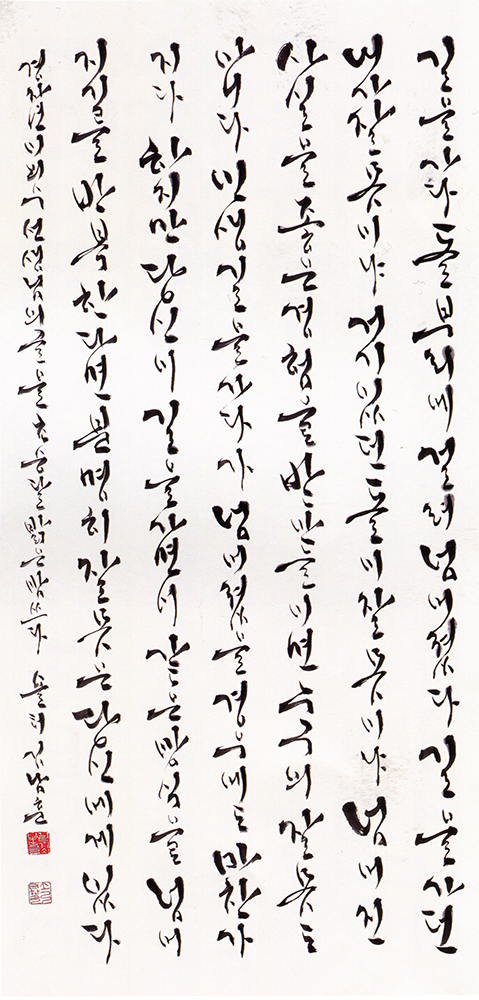 길을 가다 돌부리에 걸려 넘어졌다 길을 가던
내가 잘못이냐 거기 있던 돌이 잘못이냐 넘어진
사실을 좋은 경험으로 받아들이면 누구의 잘못도
아니다 인생길을 가다가 넘어졌을 경우에도 마찬가
지다 하지만 당신이 길을 가면서 같은 방식으로 넘어
지기를 반복한다면 분명히 잘못은 당신에게 있다
경자년 이외수 선생님의 글을 초승달 밝은 밤 쓰다